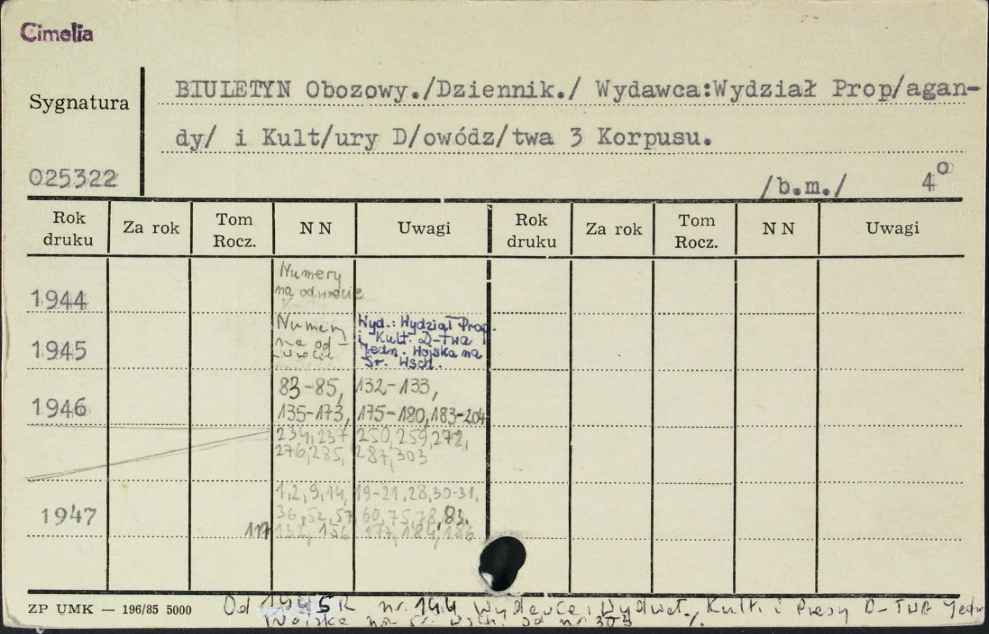 Cimelia
BIULETYN Obozowy./Dziennik./ Wydawca:Wydział Prop/agan-
Sygnatura
dy/ i Kult/ury D/owódz/twa 3 Korpusu.
025322
/b.m./ 4°
Rok druku Za rok Tom Rocz. N N Uwagi Rok druku Za rok Tom Rocz. N N Uwagi
1944 Numery
na odwrocie
1945 Numery Wyd.: Wydział Prop.
na od- i Kult. D-Twa
wrocie Jedn. Wojska na
Śr. Wsch.
1946 83-85, 132-133,
135-173, 175-180, 183-204
234, 237 250, 259, 272,
276, 285, 287, 303
1947 1, 2, 9, 14, 19-21, 28, 30-31,
36, 52, 57 60, 75, 78, 83.
117
ZP UMK — 196/85 5000 Od 1945 R nr. 144 Kult. i Prasy D-Twa
Wojska na Śr. Wsch. od nr. 303